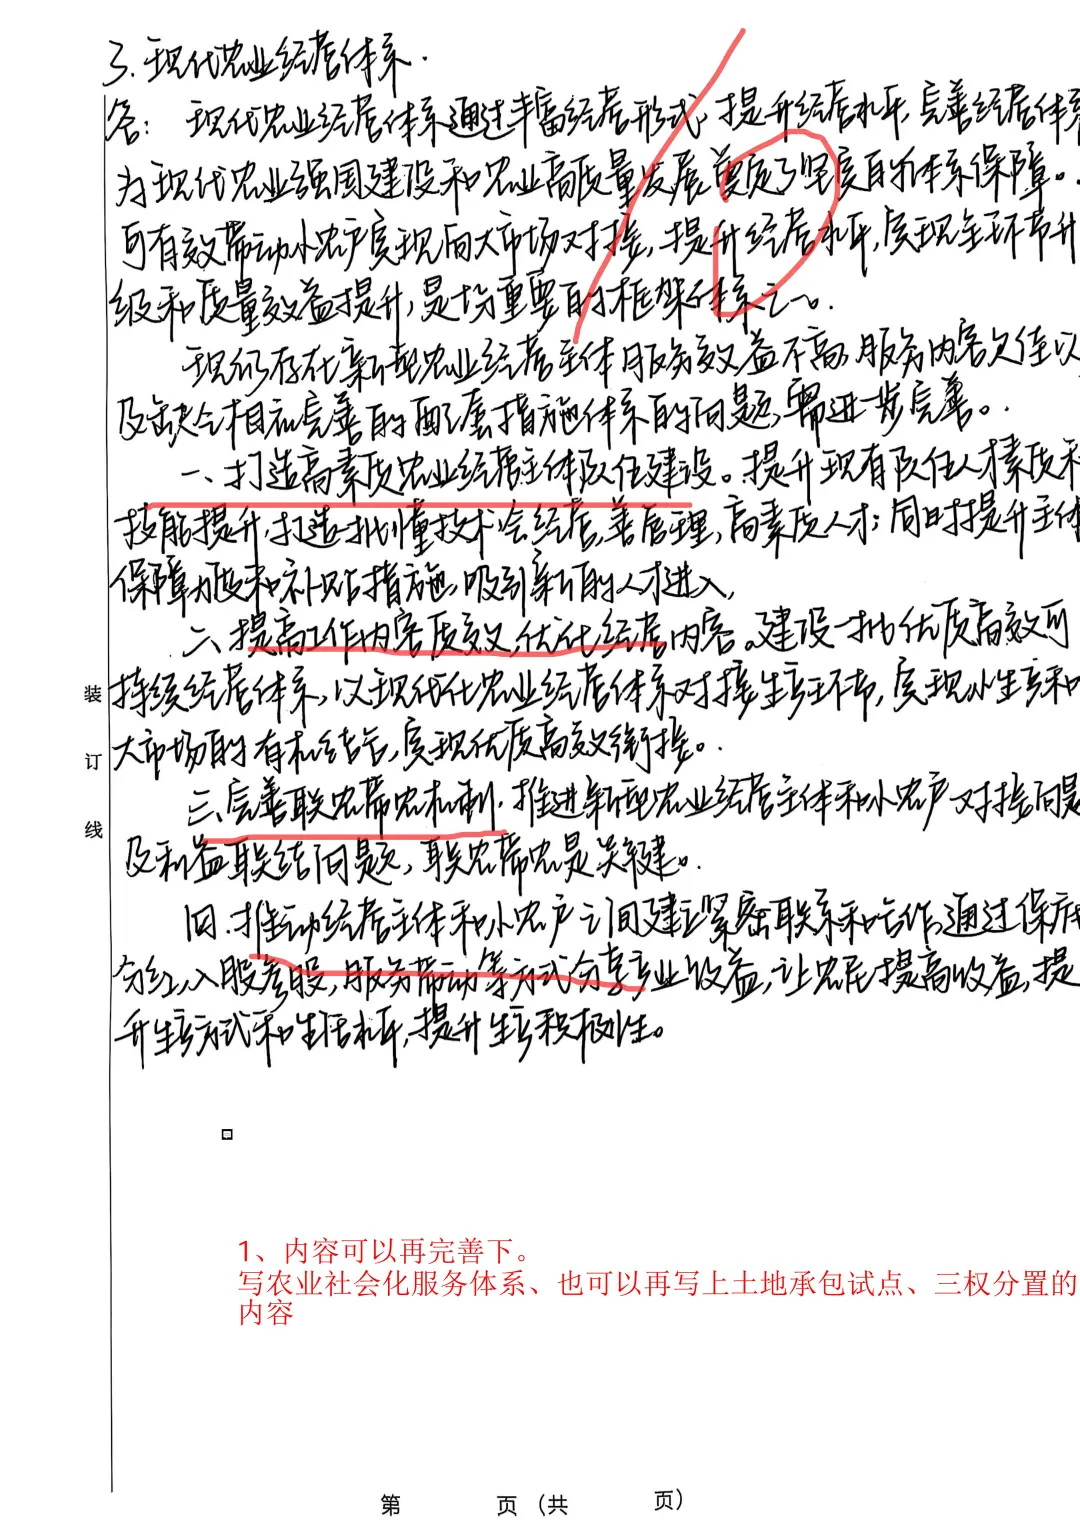 3.现代农业经营体系.
答: 现代农业经营体系通过丰富经营形式,提升经营水平,完善经营体系
为现代农业强国建设和农业高质量发展奠定了坚实的体系保障。
可有效带动小农户实现同大市场对接,提升经营水平,实现全环节升
级和质量效益提升,是重要的框架体系之一。
现仍存在新型农业经营主体服务效益不高,服务内容欠佳以
及缺乏相应完善的配套措施体系的问题,需进一步完善。
一、打造高素质农业经营主体队伍建设。提升现有队伍人才素质和
技能提升,打造一批懂技术会经营,善管理,高素质人才;同时提升主体
保障力度和补贴措施,吸引新的人才进入,
二、提高工作内容质效,优化经营内容。建设一批优质高效可
持续经营体系,以现代化农业经营体系对接生产环节,实现小生产和
大市场的有机结合,实现优质高效衔接。
三、完善联农带农机制,推进新型农业经营主体和小农户对接问题
及利益联结问题,联农带农是关键。
四.推动经营主体和小农户之间建立紧密联系和合作,通过保底
分红,入股参股,服务带动等方式分享产业收益,让农民提高收益,提
升生产方式和生活水平,提升生产积极性。
装
订
线
1、内容可以再完善下。
写农业社会化服务体系、也可以再写上土地承包试点、三权分置的
内容
第 页（共 页）